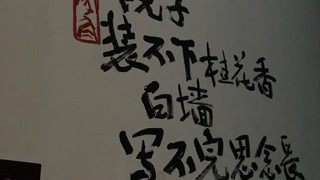 院子
装不下桂花香
白墙
写不完思念长